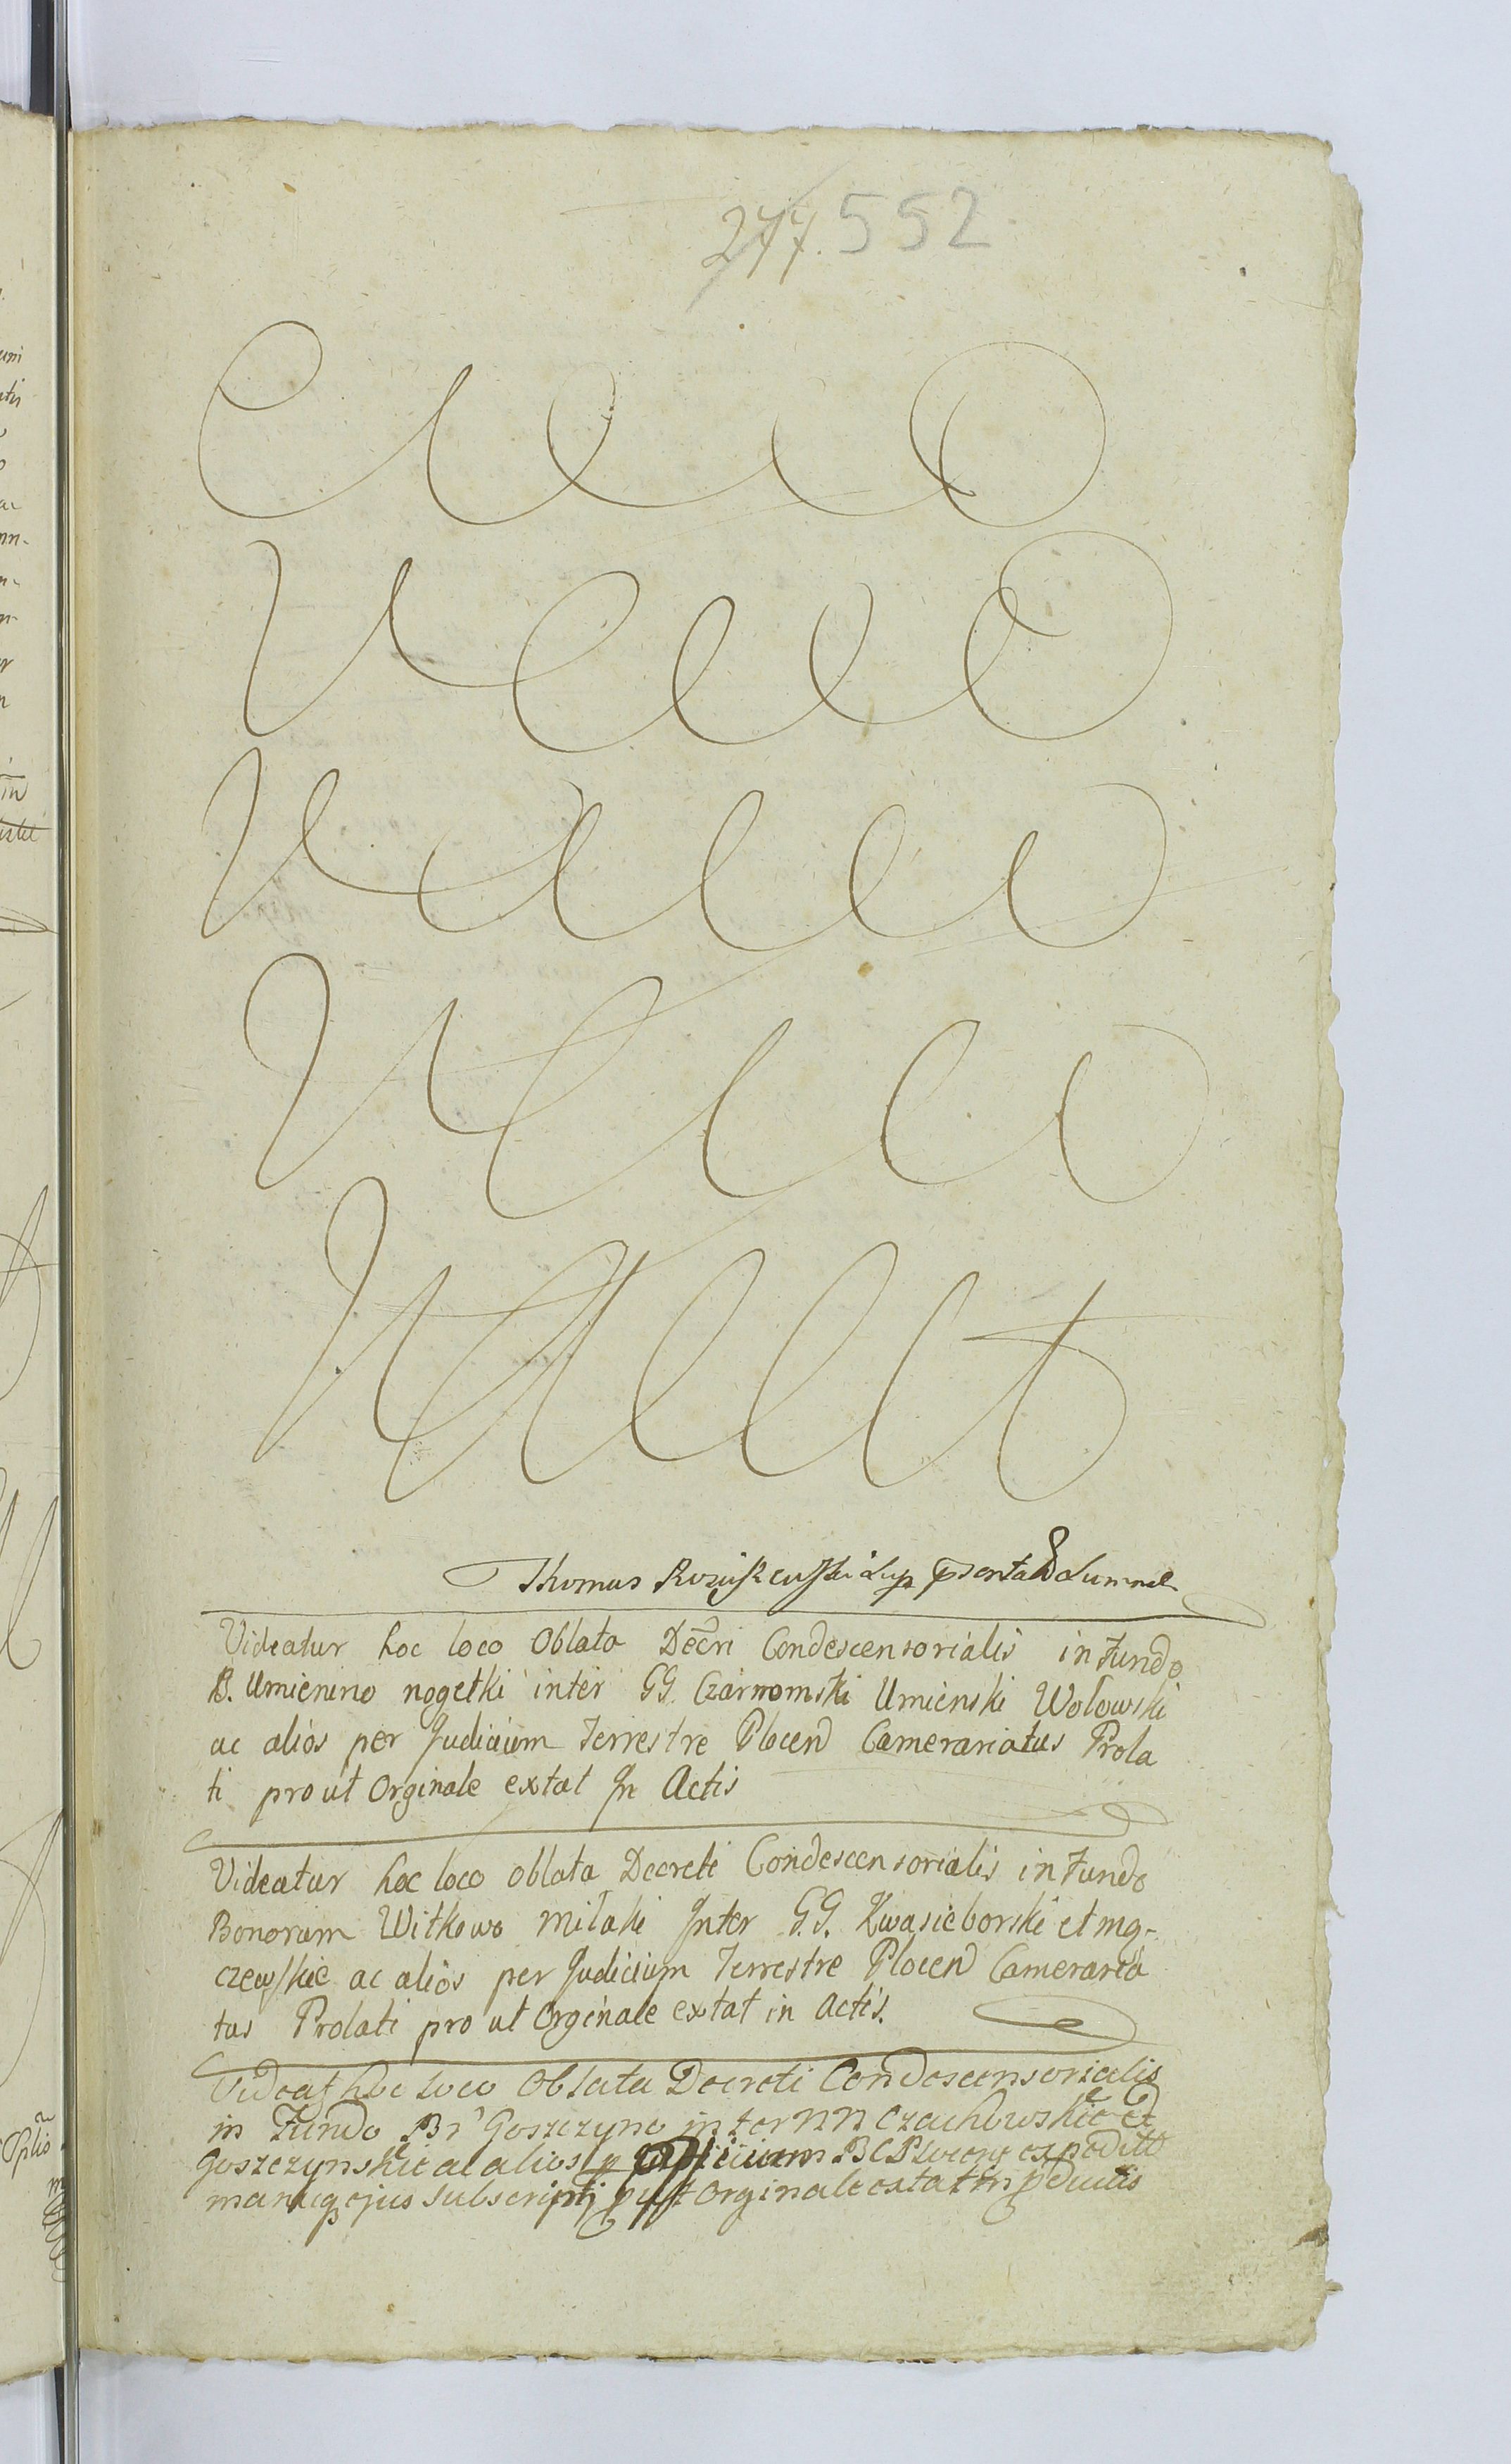 277. 552
Thomas
Videatur hoc loco Oblata Decri Condescensorialis in Fundo
B. Umienino nogetki inter GG. Czarnomski Umienski Wolowski
ac alios per Judicium Terrestre Plocen Camerariatus Prola
ti prout Orginale extat In Actis
Videatur hoc loco oblata Decreti Condescensorialis in Fundo
Bonorum Witkowo Milaki Inter G.G. Kwasieborski et mą-
czewskie ac alios per Judicium Terrestre Plocen Cameraria
tus Prolati pro ut Orginale extat in Actis.
Videat hoc loco Oblata Decreti Condescensorialis
in Fundo Br Goszczyno inter NN Czachowskie et
Goszczynskie ac alios p Judicium
manuq ejus subscripti put Orginale extat in